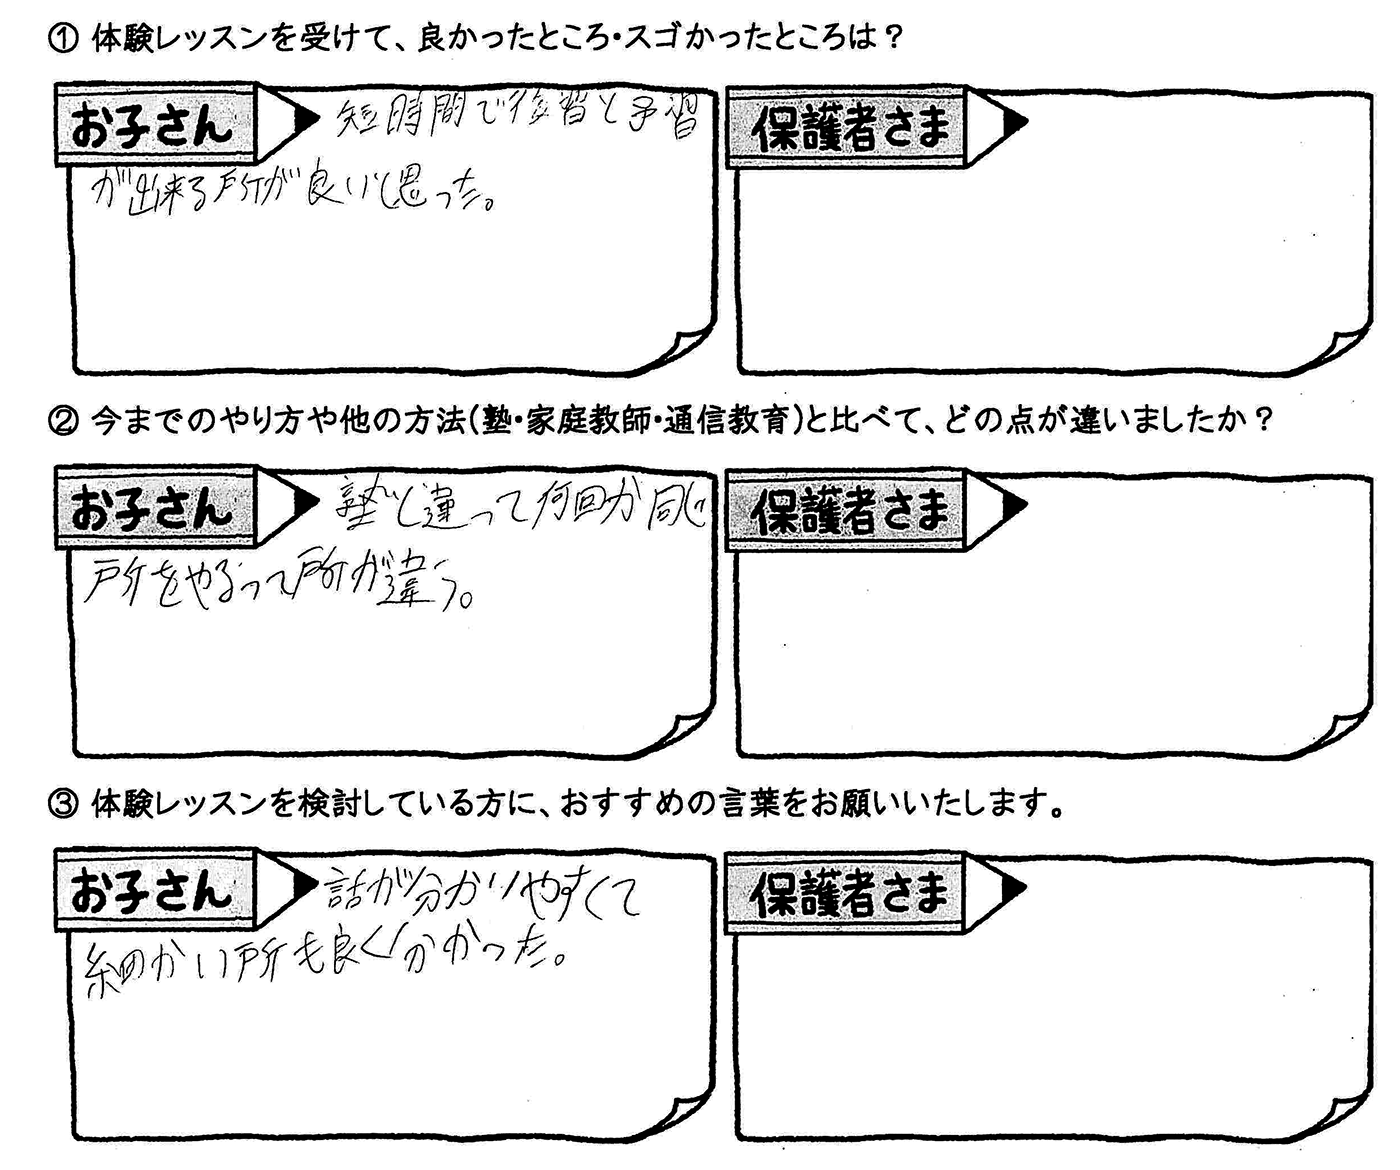 ① 体験レッスンを受けて、良かったところ・スゴかったところは？
お子さん
短時間で復習と予習
が出来る所が良いと思った。
保護者さま
② 今までのやり方や他の方法(塾・家庭教師・通信教育)と比べて、どの点が違いましたか？
お子さん
塾と違って何回か同じ
所をやるって所が違う。
保護者さま
③ 体験レッスンを検討している方に、おすすめの言葉をお願いいたします。
お子さん
話が分かりやすくて
細かい所も良く分かった。
保護者さま